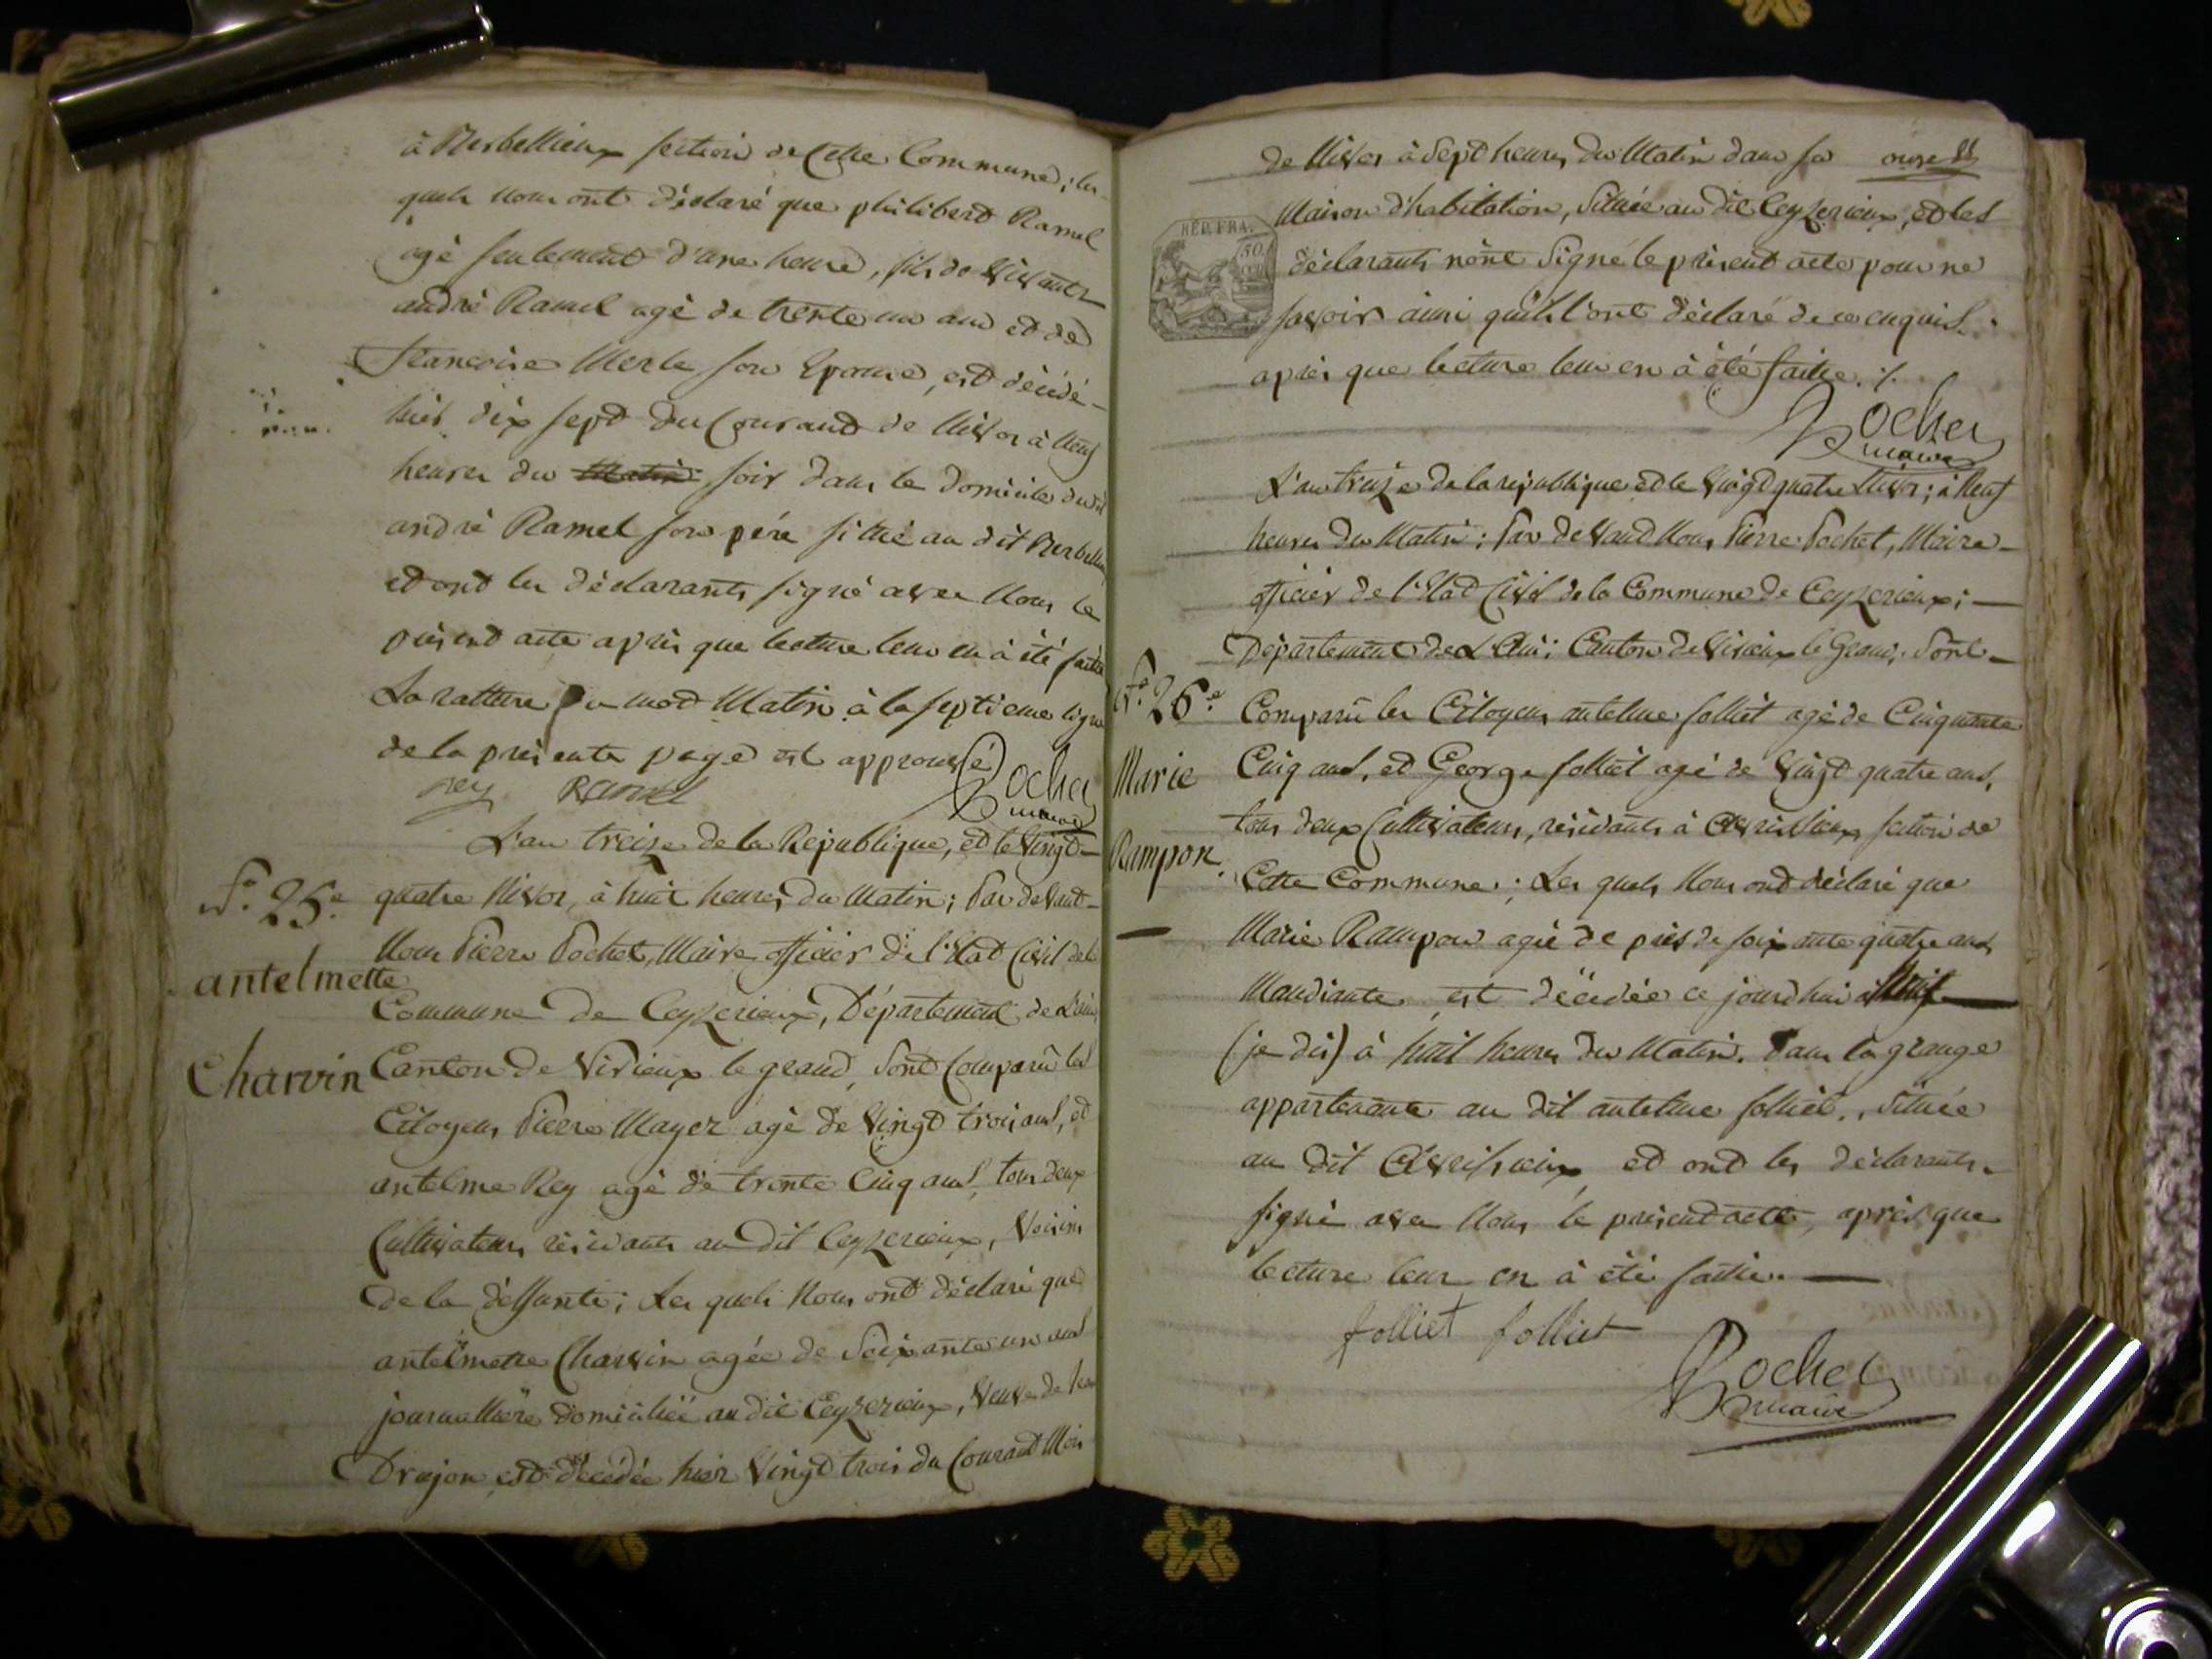 à Merbellieux section de Cette Commune; les
quels nous ont déclaré que philibert Ramel
agé seulement d'une heure, fils de vivants
andré Ramel agé de trente un ans et de
francoise Merle son Epouse, est décédé
hier dix sept du Courant de Nivos à Neuf
heures du Matin soir dans le domicile du dit
andré Ramel son pére sittué au dit
et ont les déclarants signé avec Nous le
présent acte après que lecture leur en à été faitte
La ratture du mot Matin à la septieme ligne
de la présente page est approuvé
rey Ramel Pochet
maire
L'an treize de la République, et le vingt
quatre Nivos, à huit heures du Matin; Par devant
Nous Pierre Pochet, Maire officier de l'Etat Civil de la
Commune de Ceyzerieux, Département de L'ain,
Canton de Virieux le grand, sont Comparû les
Citoyens Pierre Mayer agé de vingt trois ans, et
antelme Rey agé de trente Cinq ans, tous deux
Cultivateurs résidants au dit Ceyzerieux, voisins
de la déffunte; Les quels Nous ont déclaré que
antelmette Charvin agée de soixante un ans
journalliere domiciliée au dit Ceyzerieux, veuve de
Drujon est décédée hier vingt trois du Courant Mois
N.o 25.e
antelmette
Charvin
de Nivos à sept heures du Matin dans sa onze
Maison d'habitation, située au dit Ceyzerieux, et les
déclarants n'ont signé le présent acte pour ne
savoir ainsi qu'ils l'ont déclaré de ce enquis
après que lecture leur en à été faitte ./.
RÉP. FRA.
50.
Pochet
maire
L'an treize de la république et le vingt quatre Nivos; à Neuf
heures du Matin; Par devant Nous Pierre Pochet, Maire
officier de l'Etat Civil de la Commune de Ceyzerieux;
Département de L'Ain; Canton de Virieux le Grand, sont
Comparû les Citoyens antelme folliet agé de Cinquante
Cinq ans, et George folliet agé de vingt quatre ans,
tous deux Cultivateurs, résidants à Avrissieux section de
Cette Commune; Les quels Nous ont déclaré que
Marie Rampon agée de près de soixante quatre ans
Mandiante, est décédée ce jourd'hui à Neuf
(je dis) à huit heures du Matin. Dans la grange
appartenante au dit antelme folliet, située
au dit Avrissieux et ont les déclarants
signé avec Nous le présent acte, après que
lecture leur en à été faitte.
N.o 26.e
Marie
Rampon.
folliet folliet
Pochet
maire